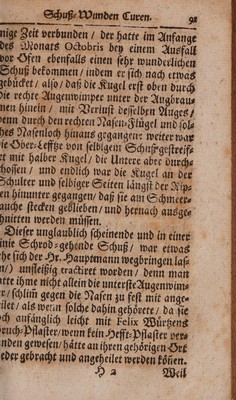 Schuß-Wunden Curen. 91
nige Zeit verbunden / der hatte im Anfange
des Monats Octobris bey einem Ausfall
vor Ofen ebenfalls einen sehr wunderlichen
Schuß bekommen / indem er sich nach etwas
gebücket / also / daß die Kugel erst oben durch
die rechte Augenwimper unter der Augbrau-
nen hinein / mit Verlust desselben Auges /
denn durch den rechten Nasen-Flügel und sol-
ches Nasenloch hinaus gegangen: weiter war
die Ober-Leffze von selbigem Schuß gestreif-
et mit halber Kugel / die Untere aber durch-
schossen / und endlich war die Kugel an der
Schulter und selbiger Seiten längst der Rip-
pen hinunter gegangen / daß sie am Schmeer-
bauche stecken geblieben / und hernach ausge-
schnitten werden müssen.
Dieser unglaublich scheinende und in einer
Linie Schrod-gehende Schuß / war etwas
ehe sich der Hr. Hauptmann wegbringen las-
sen / unfleißig tractiret worden / denn man
hatte ihme nicht allein die unterste Augenwim-
per / schlim gegen die Nasen zu fest mit ange-
heilet / als wenn solche dahin gehörete / da sie
doch anfänglich leicht mit Felix Würzens
Bruch-Pflaster / wenn kein Hefft-Pflaster ver-
handen gewesen / hätte an ihren gehörigen Ort
wieder gebracht und angeheilet werden können.
H 2 Weil